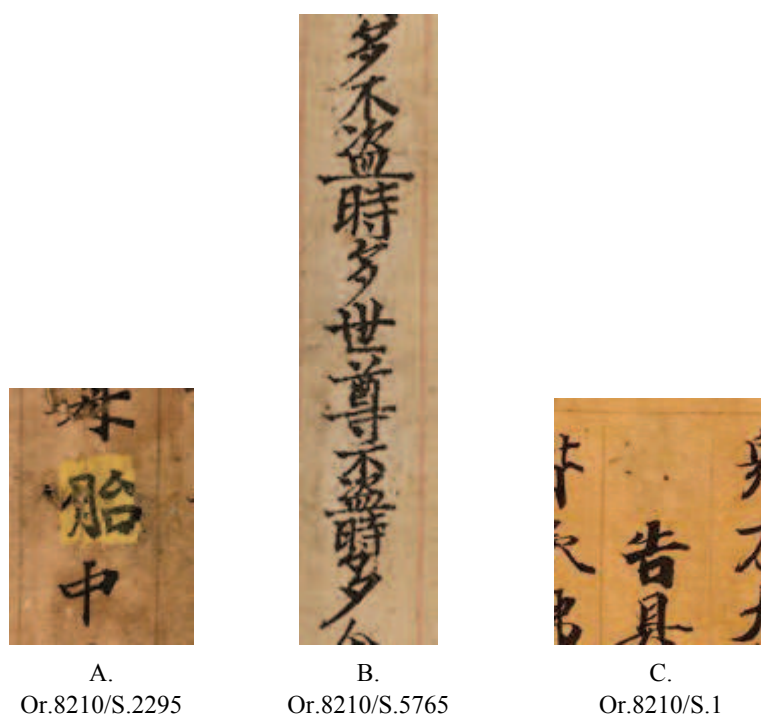 胎
中
多不盜時多世尊不盜時多
告具
A.
Or.8210/S.2295
B.
Or.8210/S.5765
C.
Or.8210/S.1